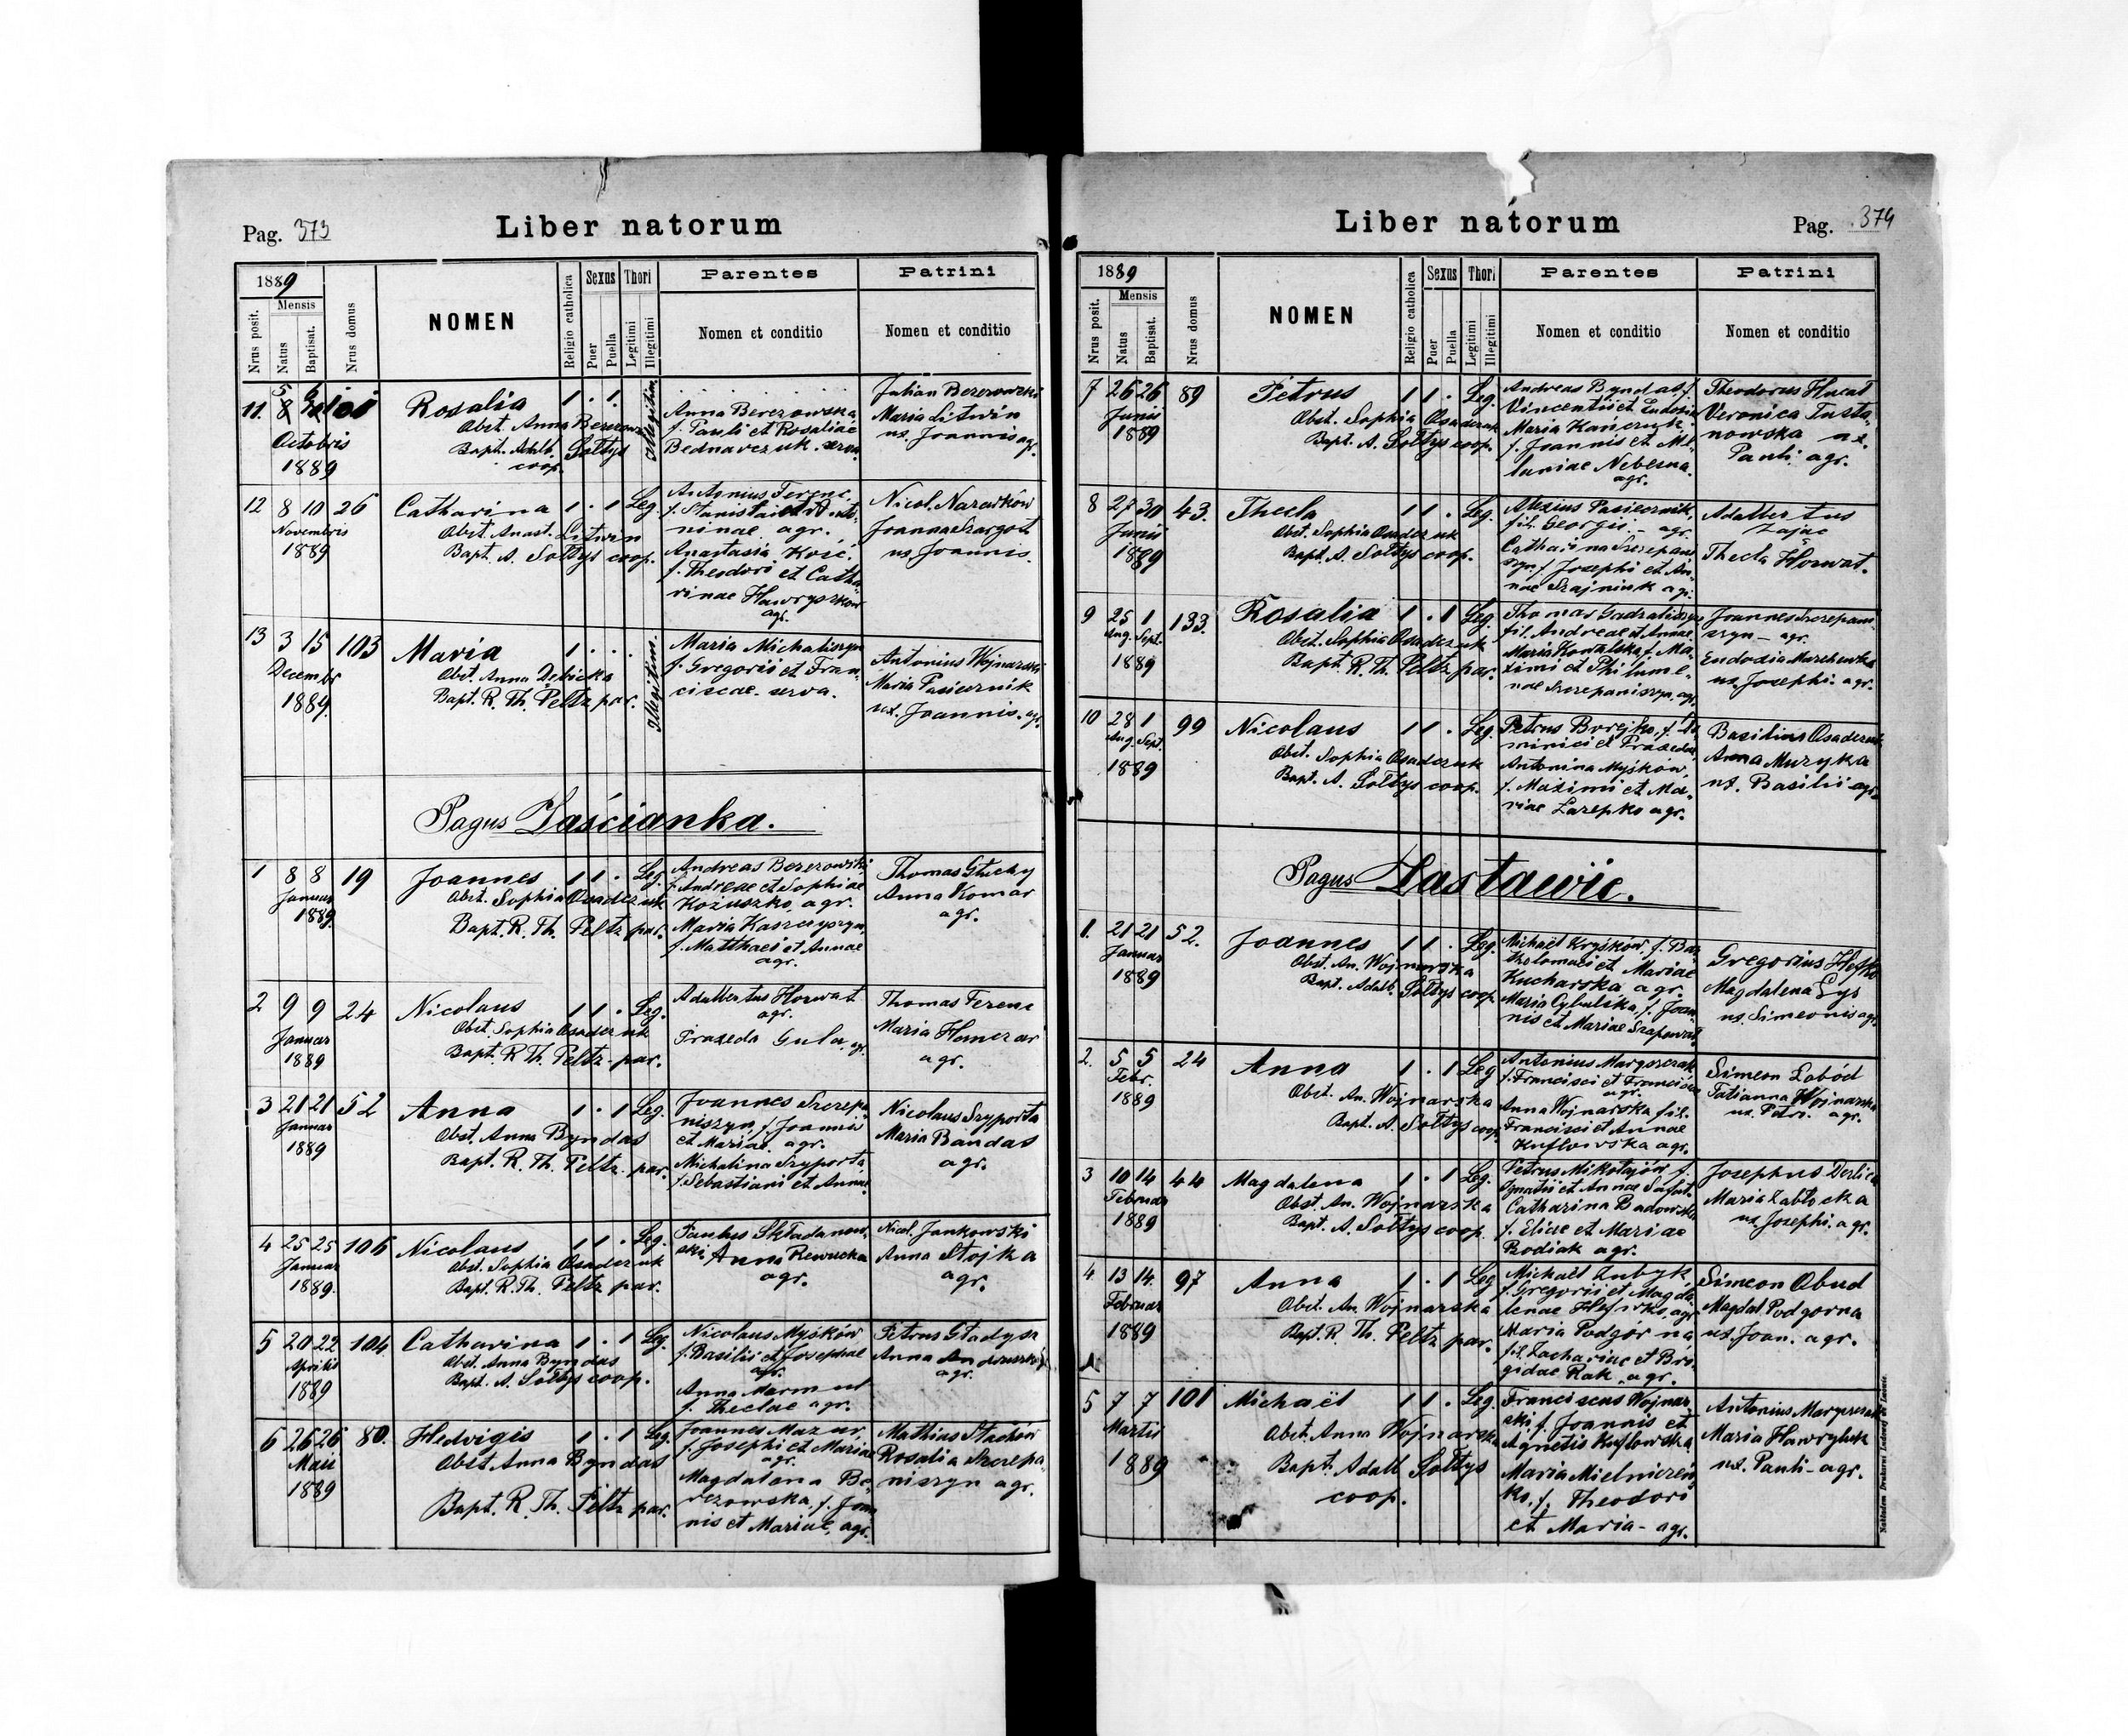 Pag. 373
Liber natorum
1889
Nrus posit.
Mensis
Natus
Baptisat.
Nrus domus
NOMEN
Religio catholica
Sexus
Puer
Puella
Thori
Legitimi
Illegitimi
Parentes
Nomen et conditio
Patrini
Nomen et conditio
11. 5 6 101 Rosalia 1 . 1 . illegitim.
Octobris
1889
Obst. Anna
Bapt. Adalb. Sołtys
coop.
Anna Berezowska
f. Pauli et Rosaliae
Bednarczuk. serva.
Julian Berezowski
Maria Litwin
ux. Joannis agr.
12 8 10 26 Catharina 1 . 1 Leg.
Novembris
1889
Obst. Anast. Litwin
Bapt. A. Sołtys coop.
Antonius Ferenc,
f. Stanislai et Anto-
ninae agr.
Anastasia Kość,
f. Theodori et Catha-
rinae Hawryszków
agr.
Nicol. Nazarków
Joanna Szargot
ux Joannis.
13 3 15 103 Maria 1 . . . illegitim.
Decembr
1889.
Obst. Anna Debicka
Bapt. R. Th. Peltz par.
Maria Michaliszyn
f. Gregorii et Fran-
ciscae - serva.
Antonius Wojnarski
Maria Pasiecznik
ux. Joannis. agr.
Pagus Zaścianka.
1 8 8 19 Joannes 1 1 . Leg.
Januar
1889.
Obst. Sophia Osadczuk
Bapt. R. Th. Peltz par.
Andreas Berezowski,
f. Andreae et Sophiae
Kożuszko, agr.
Maria Kaszczyszyn,
f. Matthaei et Annae
agr.
Thomas Głuchy
Anna Komar
agr.
2 9 9 24 Nicolaus 1 1 . Leg.
Januar
1889
Obst. Sophia Osadczuk
Bapt. R. Th. Peltz - par.
Adalbertus Horwat
agr.
Praxeda Gula. agr.
Thomas Ferenc
Maria Honczar
agr.
3 21 21 52 Anna 1 . 1 Leg.
Januar
1889
Obst. Anna Byndas
Bapt. R. Th. Peltz - par.
Joannes Szczepa-
niszyn, f. Joannis
et Mariae. agr.
Michalina Szyporta
f. Sebastiani et Annae
Nicolaus Szyporta
Maria Bandas
agr.
4 25 25 106 Nicolaus 1 1 . Leg.
Januar
1889.
Obst. Sophia Osadczuk
Bapt. R. Th. Peltz par.
Paulus Składanow-
ski, Anna Rewucka
agr.
Nicol. Jankowski
Anna Stojka
agr.
5 20 22 104 Catharina 1 . 1 Leg.
Aprilis
1889
Obst. Anna Byndas
Bapt. A. Sołtys coop.
Nicolaus Myśków
f. Basilii et Josephae
agr.
Anna
f. Theclae agr.
Petrus Gładysz
Anna
agr.
6 26 26 80. Hedvigis 1 . 1 Leg.
Maii
1889
Obst Anna Byndas
Bapt. R. Th. Peltz par.
Joannes Mazur,
f. Josephi et Mariae
agr.
Magdalena Be-
rezowska, f. Joan-
nis et Mariae, agr.
Mathias Stachów
Rosalia Szczepa-
niszyn agr.
Liber natorum
Pag. 374
1889
Nrus posit.
Mensis
Natus
Baptisat.
Nrus domus
NOMEN
Religio catholica
Sexus
Puer
Puella
Thori
Legitimi
Illegitimi
Parentes
Nomen et conditio
Patrini
Nomen et conditio
7 26 26 89 Petrus 1 1 . Leg.
Junii
1889
Obst. Sophia Osadczuk
Bapt. A. Sołtys coop.
Andreas Byndas, f.
Vincentii et Eudosia
Maria
f. Joannis et Me-
laniae Nebesna.
agr.
Theodorus
Veronica Tusta-
nowska ux.
Pauli agr.
8 27 30 43. Thecla 1 1 . Leg.
Junii
1889
Obst. Sophia Osadczuk
Bapt. A. Sołtys coop.
Alexius Pasiecznik,
fil. Georgii - agr.
Catharina Szczepani-
szyn f. Josephi et An-
nae Szajniuk agr.
Adalbertus
Zając
Thecla Horwat.
9 25 1 133. Rosalia 1 . 1 Leg.
Aug. Sept.
1889
Obst. Sophia Osadczuk
Bapt. R. Th. Peltz par.
Thomas
fil. Andreae et Annae
Maria Kowalska f. Ma-
ximi et Philume-
nae Szczepaniszyn, agr.
Joannes Szczepani-
szyn - agr.
Eudoxia
ux. Josephi - agr.
10 28 1 99 Nicolaus 1 1 . Leg.
Aug. Sept.
1889
Obst. Sophia Osadczuk
Bapt. A. Sołtys coop.
Petrus Borejko, f. Do-
minici et Praxedae
Antonina Myśków,
f. Maximi et Ma-
riae Łazepko agr.
Basilius Osadczuk
Anna Muzyka
ux. Basilii agr.
Pagus Zastawie.
1. 21 21 52. Joannes 1 1 . Leg.
Januar
1889
Obst. An. Wojnarska
Bapt. Adalb. Sołtys coop.
Michaël Kryśków, f. Bar-
tholomaei et Mariae
Kucharska agr.
Maria Cybulska, f. Joan-
nis et Mariae
Gregorius
Magdalena Łys
ux. Simeonis agr.
2. 5 5 24 Anna 1 . 1 Leg
Febr.
1889
Obst. An. Wojnarska
Bapt. A. Sołtys coop.
Antonius Maryszczak
f. Francisci et Franciscae
agr.
Anna Wojnarska fil.
Francisci et Annae
Kuflowska agr.
Simeon Łobód
Tatianna Wojnarska
ux. Petri. agr.
3 10 14 44 Magdalena 1 . 1 Leg.
Februar
1889
Obst. An. Wojnarska
Bapt. A. Sołtys coop.
Petrus Mikołajów f.
Ignatii et Annae
Catharina Badowska
f. Eliae et Mariae
Bodiak agr.
Josephus
Maria Zabłocka
ux. Josephi. agr.
4 13 14. 97 Anna 1 . 1 Leg
Februar
1889
Obst. An. Wojnarska
Bapt. R. Th. Peltz par.
Michaël Zubyk
f. Gregorii et Magda-
lenae
Maria Podgórna
fil. Zachariae et Bri-
gidae Rak, agr.
Simeon Obud
Magdal. Podgorna
ux. Joan. agr.
5 7 7 101 Michaël 1 1 . Leg.
Martii
1889
Obst. Anna Wojnarska
Bapt. Adalb Sołtys
coop.
Franciscus Wojnar-
ski f. Joannis et
Agnetis Kuflowska
Maria Mielniczeń-
ko, f. Theodori
et Maria - agr.
Antonius Maryszczak
Maria Hawryluk
ux. Pauli - agr.
Nakładem Drukarni Ludowej we Lwowie.